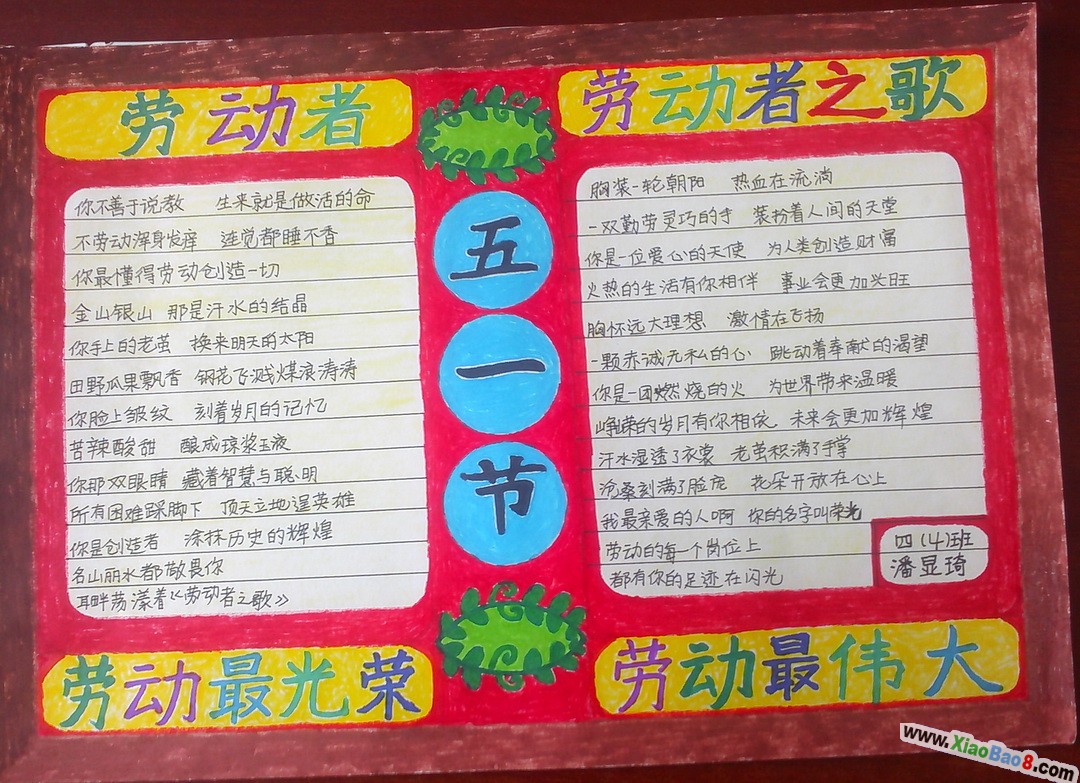 劳动者
你不善于说教 生来就是做活的命
不劳动浑身发痒 连觉都睡不香
你最懂得劳动创造一切
金山银山 那是汗水的结晶
你手上的老茧 换来明天的太阳
田野瓜果飘香 钢花飞溅煤浪涛涛
你脸上皱纹 刻着岁月的记忆
苦辣酸甜 酿成琼浆玉液
你那双眼睛 藏着智慧与聪明
所有困难踩脚下 顶天立地逞英雄
你是创造者 涂抹历史的辉煌
名山丽水都敬畏你
耳畔荡漾着《劳动者之歌》
劳动最光荣
五一节
劳动者之歌
胸装一轮朝阳 热血在流淌
一双勤劳灵巧的手 装扮着人间的天堂
你是一位爱心的天使 为人类创造财富
火热的生活有你相伴 事业会更加兴旺
胸怀远大理想 激情在飞扬
一颗赤诚无私的心 跳动着奉献的渴望
你是一团燃烧的火 为世界带来温暖
峥嵘的岁月有你相依 未来会更加辉煌
汗水湿透了衣裳 老茧积满了手掌
沧桑刻满了脸庞 花朵开放在心上
我最亲爱的人啊 你的名字叫荣光
劳动的每一个岗位上
都有你的足迹在闪光
四(4)班
潘显琦
劳动最伟大
www.XiaoBao8.com